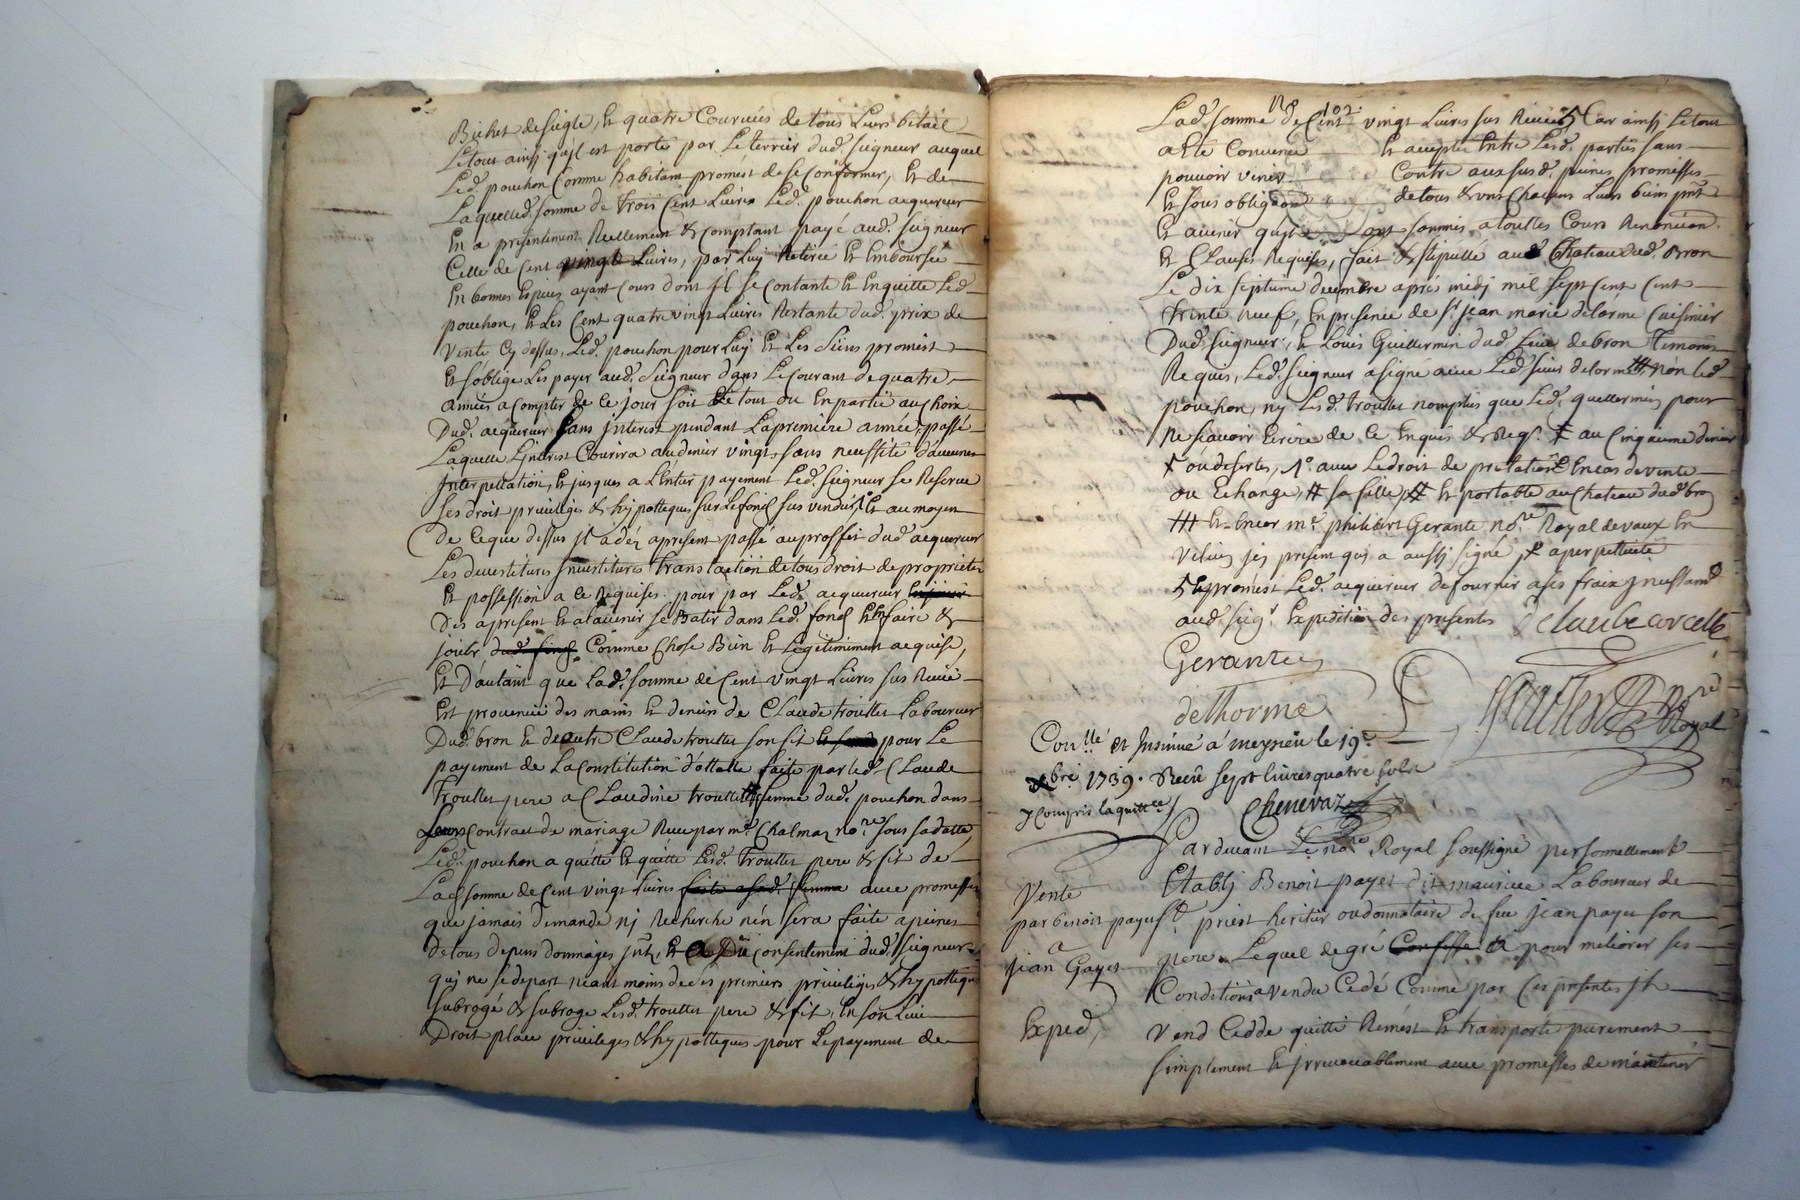 Bichet de seigle, et quatre Courvées de tous Leurs bétail
Le tout ainsi qu'il est porté par Le terrier dud. seigneur auquel
Led. pouchon Comme habitant promest de se Conformer, Et de
Laquelled. somme de trois Cent Livres Led. pouchon acquereur
En a presentement Reellement & Comptant payé aud. seigneur
Celle de Cent vingt Livres, par Luy Retirée Et Emboursée
En bonnes Espèces ayant Cours dont jl se Contante Et Enquitte Led.
pouchon, Et Les Cent quatre vingt Livres Restante dud. prix de
Vente Cy dessus, Led. pouchon pour Luy Et Les Siens promest
Et s'oblige Les payer aud. Seigneur dans Le Courant de quatre
années a Compter de Ce jour soit En tout ou En partie au Choix
Dud. acquereur sans jnterest pendant La premiere année, passé
Laquelle L'jnterest Courira au denier vingt, sans necessité d'aucunes
jnterpellation, Et jusques a L'Entier payement Led. seigneur se Reserve
ses droit privileges & hypotteques sur Le fond sus vendus, Et au moyen
De Ceque dessus jl a dez apresent passé au proffit dud. acquereur
Les devestitures jnvestitures translaction de tous droit de proprieté
Et possession a Ce Requises pour par Led. acquereur
Des apresent Et alavenir se Batir dans Led. fond En faire &
jouir dud. fond Comme Chose Bien Et Legitimement acquise,
Et D'autant que Lad. somme de Cent vingt Livres sus Reçüe
Est provenüe des mains Et deniers de Claude trouillet Laboureur
Dud. bron Et de autre Claude trouillet son fil pour Le
payement de La Constitution dottalle faite par led. Claude
Trouillet pere a Claudine trouillet femme dud. pouchon dans
Leurs Contract de mariage Receu par me. Chalmaz nore. sous sa datte,
Led. pouchon a quitté Et quitte Lesd. Trouillet pere & fil de
Lad. somme de Cent vingt Livres faite a sad. femme avec promesses
que jamais demande nj Recherche n'en sera faite a peines
de tous depens dommages jnt. Et Du Consentement dud. seigneur
quj ne se depart neantmoins de ses premiers privileges & hypotteques
subrogé & subroge Lesd. trouillet pere & fil, En son Lieu
Droit place privileges & hypotteques pour Le payement de
Lad. somme de Cent vingt Livres sus Reçües Car ainsi Le tout
a Eté Convenu Et accepté Entre Lesd. parties sans
pouvoir venir Contre aux susd. peines promesses
Et sous obligaon de tous & uns Chacuns Leurs biens pnts.
Et avenir qu'jls ont soumis a touttes Cours Renonçãon.
Et Clauses Requises, fait & stipullé au Chateau dud. Bron
Le dix septieme decembre apres midj mil sept Cent Cent
trente neuf, En presence de sr. jean marie delorme Cuisinier
Dud. seigneur, Et Louis Guillermin dud. Lieu de bron Temoins
Requis, Led. seigneur a signé avec Led. sieur delorme, non led.
pouchon, ny Lesd. trouillet nomplus que Led. guillermin pour
ne scavoir Ecrire de Ce Enquis & Reqs. au Cinquieme denier
ou desertes, 1º. avec Le droit de prelation En cas de vente
ou Echange, # sa fille, ## Et portable au Chateau dud. bron
### Et Encor me. philibert Gerante nore. Royal de vaux En
Velin jcj present quj a aussj signé, a perpetuité
Et promest Led. acquereur de fournir a ses fraix jncessamt.
aud. seigr. Expedition des presentes
Gerante
delhorme
Royal
Conlle. et Insinué a meyzieu le 19e.
xbre. 1739. Recû sept livres quatre sols
y Compris la quittce.
Chenevaz
Pardevant Le nore. Royal soussigné personnellement
Etablj Benoit payet dit maurice Laboureur de
Vente
par benoist payet
a
jean Gayet
Exped.
st. priest heritier ou donnataire de feu jean payet son
pere. Lequel de gré Confesse pour meliorer ses
Conditions a vendu Cedé Comme par Ces presentes jl
vend Cedde quitte Remest Et transporte purement
simplement Et jrrevocablement avec promesses de maintenir